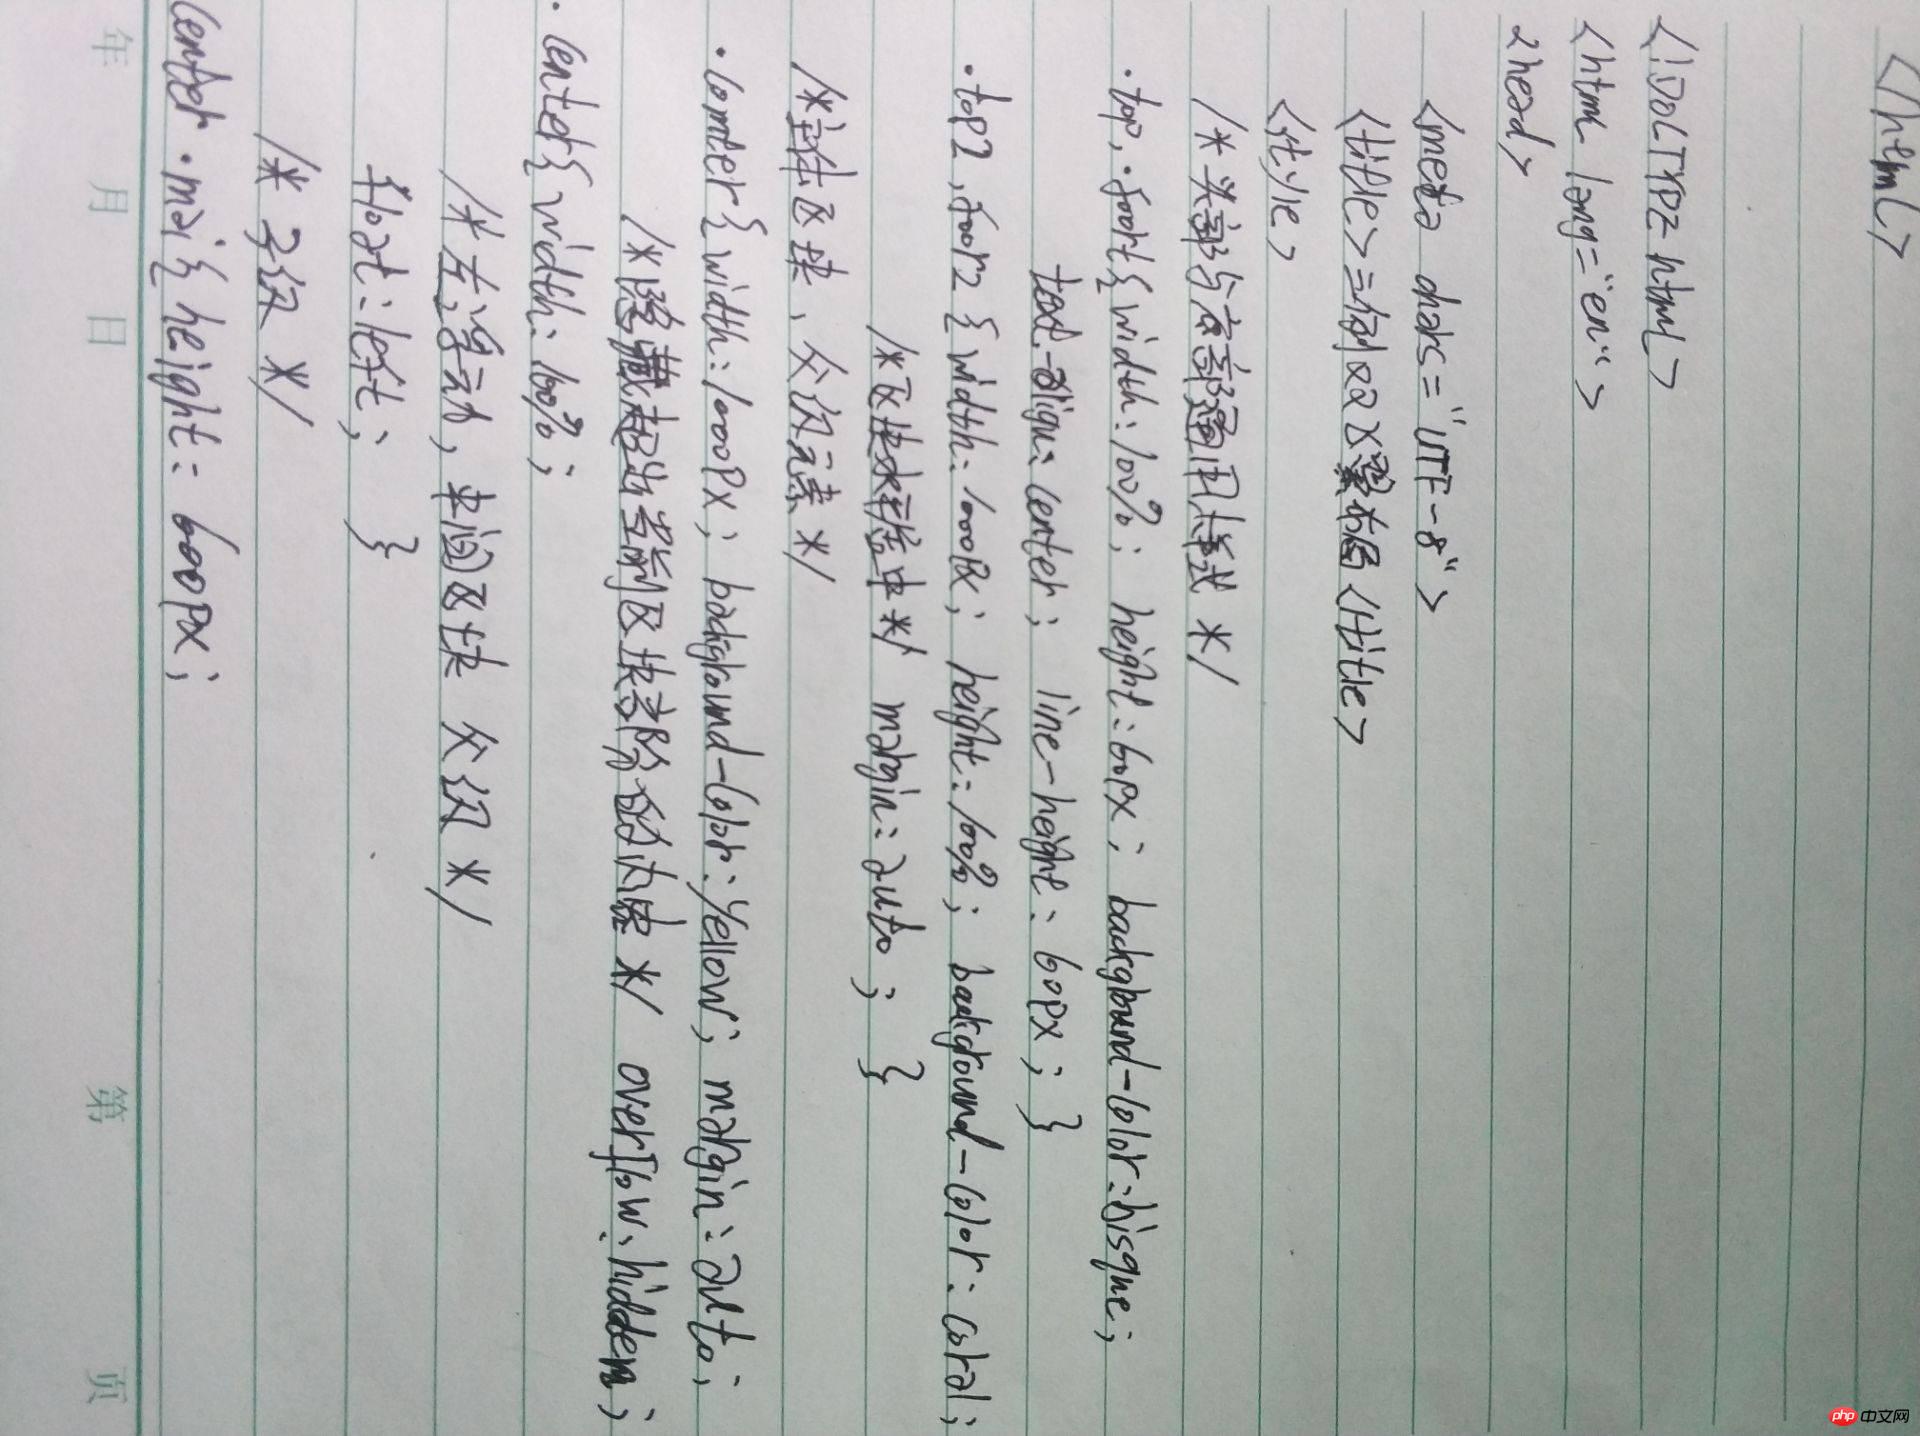 </html>
<!DOCTYPE html>
<html lang="en">
<head>
<meta chars="UTF-8">
<title>三例双飞翼布局</title>
<style>
/*头部与底部通用样式 */
.top,.foort{width:100%; height:60px; background-color:bisque;
text-align:center; line-height:60px; }
.top2,.foor2{width:1000px; height:100%; background-color:coral;
/*区块水平居中*/ margin:auto; }
/*主体区块、父级元素*/
.conter{width:1000px; background-color:yellow; margin:auto;
/*隐藏超出当前区块高阶的内容*/ overflow:hidden;
.center{width:100%;
/*左浮动,中间区块 父级*/
float:left; }
/*子级*/
center.mai{height:600px;
年 月 日 第 页
php 中文网